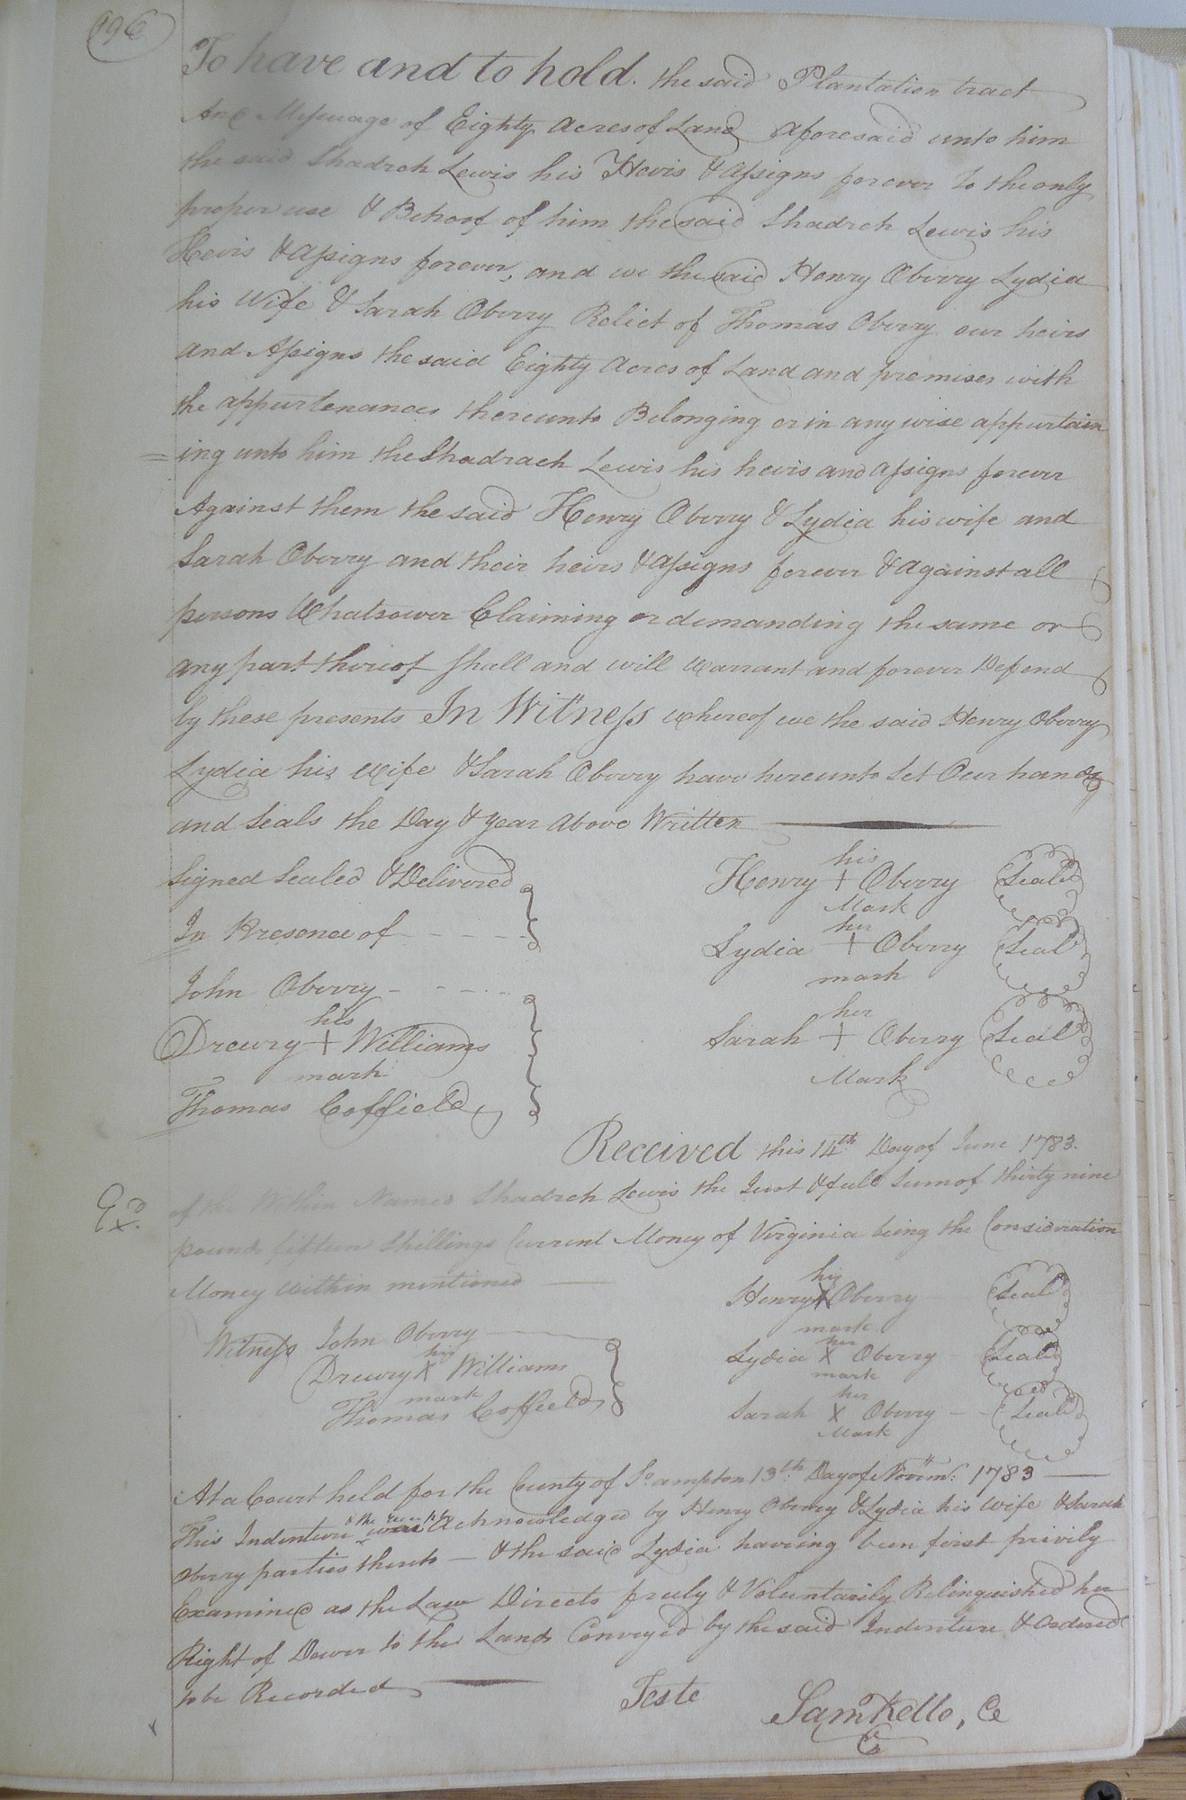 196
To have and to hold. the said Plantation tract
And Messuage of Eighty Acres of Land aforesaid unto him
the said Shadrch Lewis his Hevis & Assigns forever To the only
proper use & Behoof of him the said Shadrch Lewis his
Hevis & Assigns forever, and we the said Henry Oberry Lydia
his Wife & Sarah Oberry Relict of Thomas Oberry our heirs
and Assigns the said Eighty Acres of Land and premises with
the appurtenances thereunto Belonging or in any wise appurtain
=ing unto him the Shadrach Lewis his hevis and assigns forever
Against them the said Henry Oberry & Lydia his wife and
Sarah Oberry and their heirs & assigns forever & against all
persons Whatsover Claiming or demanding the same or
any part thereof shall and will warrant and forever Defend
by these presents In Witness whereof we the said Henry Oberry
Lydia his wife & Sarah Oberry have hereunto Set Our hands
and Seals the Day & year above Written
Signed Sealed & Delivered
In Presence of
John Oberry
his
Drewry + Williams
mark
Thomas Coffield
his
Henry + Oberry Seal
Mark
her
Lydia + Oberry Seal
mark
her
Sarah + Oberry Seal
Mark
Received this 14th Day of June 1783.
Exd.
of the Within Named Shadrch Lewis the Just & full Sum of thirty nine
pounds fifteen Shillings Current Money of Virginia being the Consideration
Money within mentioned
Witness John Oberry
his
Drewry X Williams
mark
Thomas Coffield
his
Henry X Oberry Seal
mark
her
Lydia X Oberry Seal
mark
her
Sarah X Oberry Seal
Mark
At a Court held for the County of So.ampton 13th. Day of Novem: 1783
This Indenture & the receipt was Acknowledged by Henry Oberry & Lydia his Wife & Sarah
oberry parties thereto & the said Lydia having been first privily
Examined as the Law Directs freely & Voluntarily Relinquished her
Right of Dower to the Lands Conveyed by the said Indenture & ordered
to be Recorded
Teste
Saml Kello, Ce
C